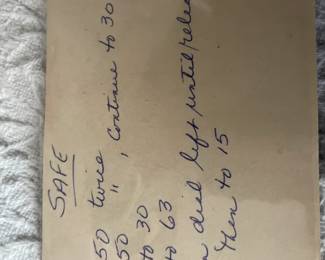 SAFE
50 twice
50 " , Continue to 30
to 30
to 63
dial left, until
then to 15